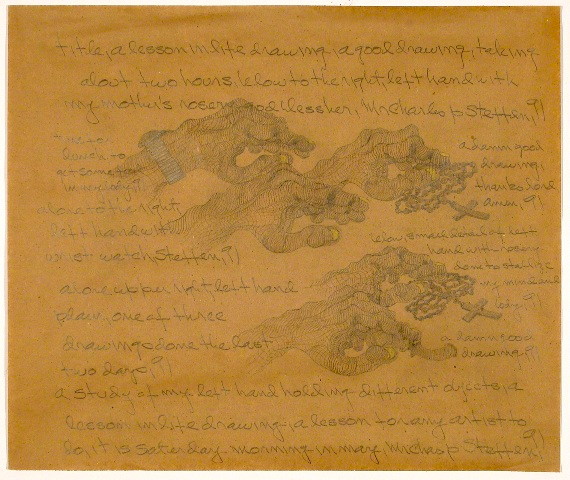 title, a lesson in life drawing, a good drawing, taking
about two hours, below to the right, left hand with
my mother's rosery, god bless her, Mr Charles p Steffen, 91
time for
lunch to
get some
a damn good
drawing,
thanks lord
amen, 91
above to the right,
left hand with
wrist watch, Steffen, 91
below, small detail of left
hand with rosery
done to
my mind and
body, 91
above upper right, left hand
plain, one of three
drawings done the last
two days, 91
a damn good
drawing, 91
a study of my left hand holding different ojects, a
lesson in life drawing, a lesson for any artist to
do, it is saturday morning in may, Mr Chas p Steffen, 91